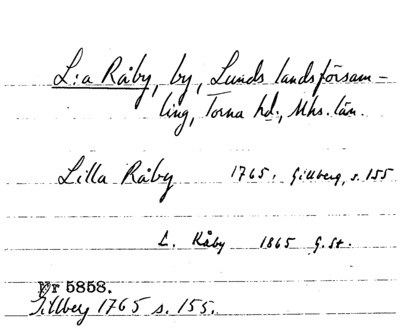 L:a Råby, by, Lunds landsförsam-
ling, Torna hd., Mhs. län.
Lilla Råby 1765. Gillberg, s. 155
L. Råby 1865 G.St.
Nr 5858.
Gillberg 1765 s. 155.